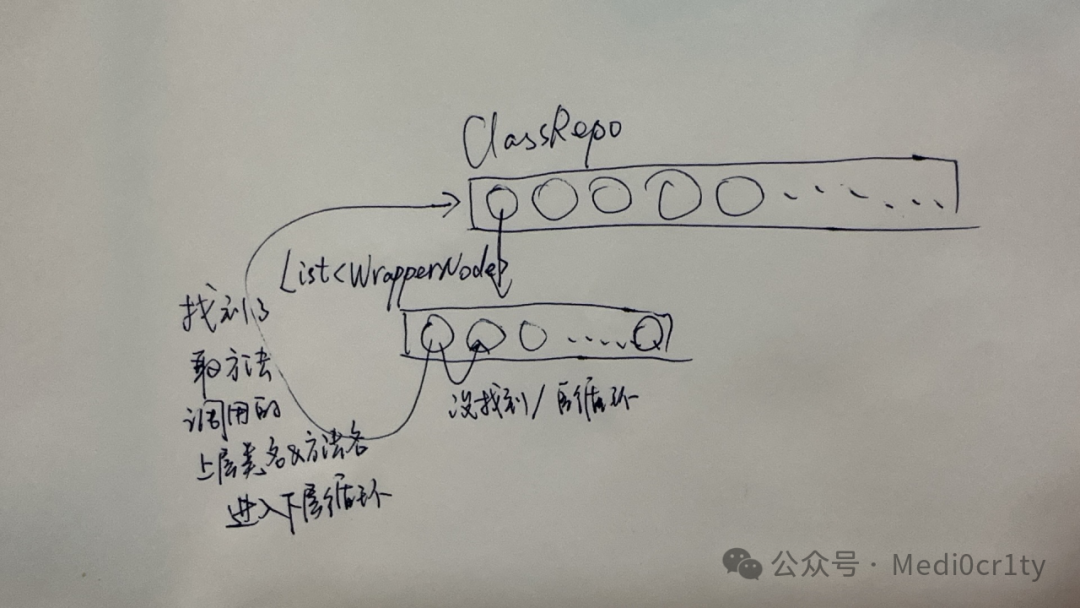 ClassRepo
List<WrapperNode>
找到了
取方法
调用的
上层类名&方法名
进入下层循环
没找到/后循环
公众号 · Medi0cr1ty